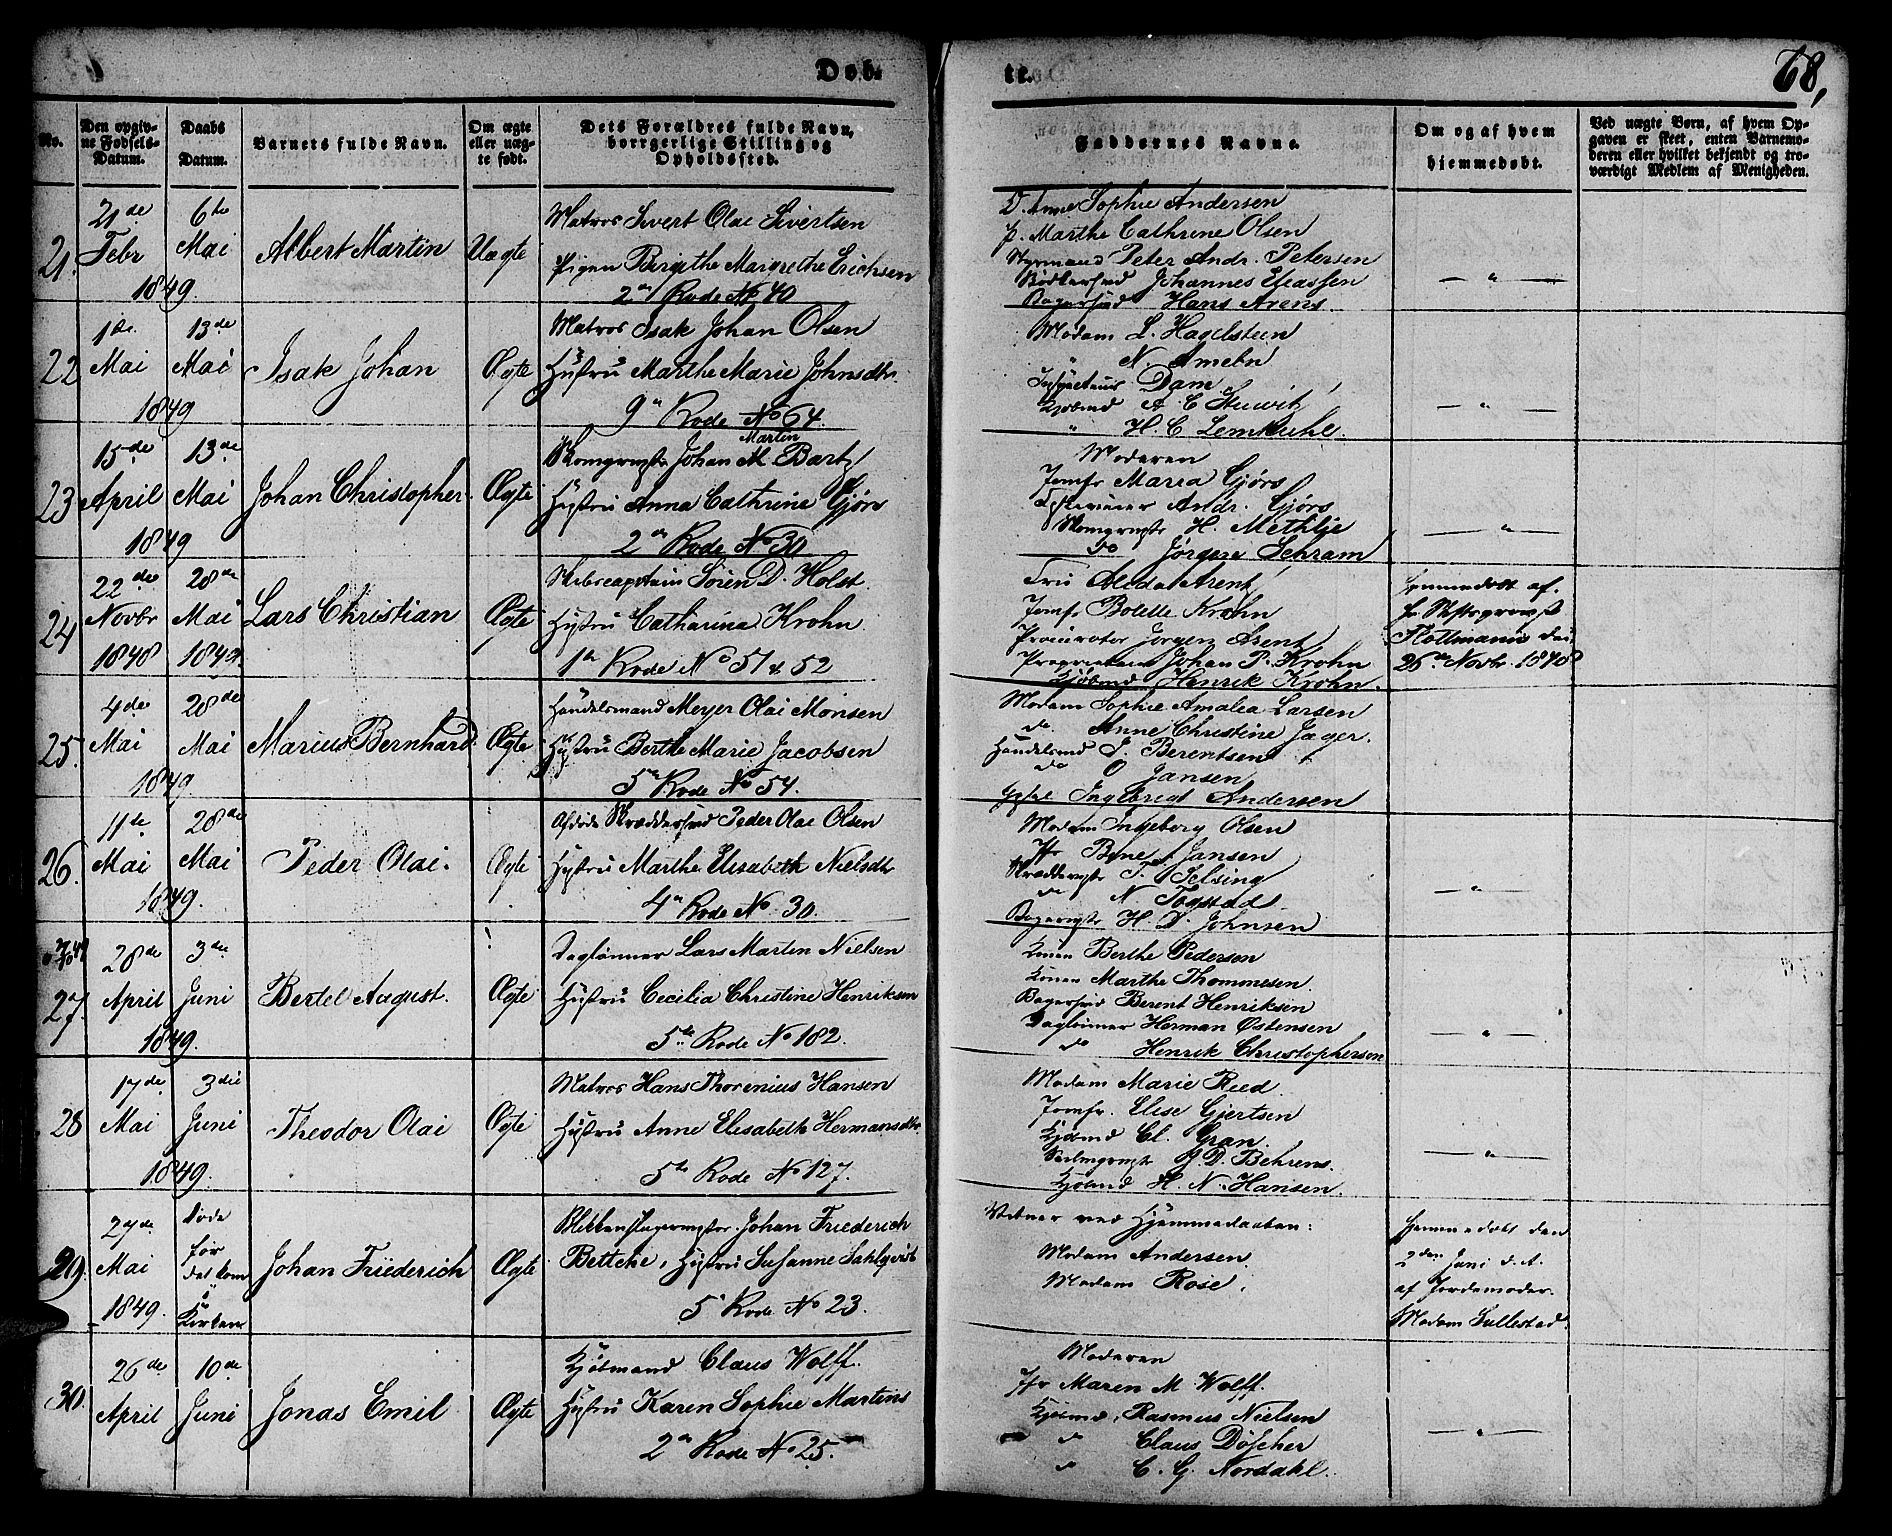 Døb-
te.
68,
No.
Den opgiv-
ne Fødsels-
Datum.
Daabs
Datum.
Barnets fulde Navn.
Om ægte
eller uæg-
te født.
Dets Forældres fulde Navn,
borrgerlige Stilling og
Opholdssted.
Faddernes Navne.
Om og af hvem
hjemmedøbt.
Ved uægte Børn, af hvem Op-
gaven er skeet, enten Barnemo-
deren eller hvilket bekjendt og tro-
værdigt Medlem af Menigheden.
21.
21de
Febr
1849.
6te
Mai
Albert Martin
Uægte
Matros Sivert Olai Sivertsen
Pigen Birgithe Margrethe Erichsen
2den Rode No 40
Anne Sophie Andersen
p. Marthe Cathrine Olsen
Styrmand Peter Andr. Petersen
Bødkersvd Johannes Eliassen
Bagersvd Hans Arens
— " —
22
1ste
Mai
1849
13de
Mai
Isak Johan
Ægte
Matros Isak Johan Olsen
Hustru Marthe Marie Johnsdtr.
9de Rode No 64.
Madam L. Hagelsteen
" N. Ameln
Inspecteur Dam
Kjøbmd A C
" H. C Lemkuhl.
— " —
23
15de
April
1849
13de
Mai
Johan Christopher
Ægte
Martin
Skomgrmstr Johan M Bartz
Hustru Anna Cathrine Gjørs
2den Rode No 30
Moderen
Jomfr Maren Gjørs
Andr. Gjørs
Skomgrmstr H. Methlje
do Jørgen Schram
— " —
24
22de
Novbr
1848
28de
Mai
1849.
Lars Christian
Ægte
Skibscaptain Søren D. Holst.
Hustru Catharina Krohn
1ste Rode No 51 & 52
Fru Alida Arentz
Jomfr Bolette Krohn
Procurator Jørgen Arentz
Proprietair Johan P. Krohn
Kjøbmd Henrik Krohn.
Hjemmedøbt af
Hr Stiftsprovst
Flottmann den
25de Novbr. 1848
25.
4de
Mai
1849
28de
Mai
Marius Bernhard
Ægte
Handelsmand Meyer Olai Monsen
Hustru Berthe Marie Jacobsen
5te Rode No 54.
Madam Sophie Amalia Larsen
do. Anne Christine Jæger.
Handelsmd J. Berentsen
do O Jansen
Ingebrigt Andersen
26.
11de
Mai
1849.
28de
Mai
Peder Olai.
Ægte
Afdøde Skræddersvd Peder Olai Olsen
Hustru Marthe Elisabeth Nielsdtr
4de Rode No 30.
Madam Ingeborg Olsen
Jfr Bine Jansen
Skræddermstr T. Selsing
do N. Togstad
Bagermstr H. D. Johnsen
— " —
27.
28de
April
1849.
3die
Juni
Bertel August.
Ægte
Dagleonner Lars Martin Nielsen
Hustru Cecilia Christine Henriksen
5te Rode No 182.
Konen Berthe Pedersen
Konen Marthe Thommesen
Bagersvd Berent Henriksen
Dagleonner Herman Østensen
do Henrik Christophersen
— " —
28
17de
Mai
1849.
3die
Juni
Theodor Olai
Ægte
Matros Hans Thorenius Hansen
Hustru Anne Elisabeth Hermansdtr.
5te Rode No 127.
Madam Marie Reed
Jomfr. Elise Gjertsen
Kjøbmd Cl. Gran.
Seilmgrmstr J. D. Behrens.
Kjøbmd H. N. Hansen.
— " —
29.
27de
Mai
1849.
Døde
før
det kom
i
Kirken
Johan Friederich
Ægte
Blikkenslagermester Johan Friederich
Bettche, Hustru Susanne Sahlqvist
5 Rode No 23.
Vidner ved Hjemmedaaben:
Madam Andersen.
Madam Rose.
Hjemmedøbt den
2den Juni d. A.
af Jordemoder
Madam Sullestad.
30.
26de
April
10de
Juni
Jonas Emil
Ægte
Kjøbmand Claus Wolff.
Hustru Karen Sophie Martens
2den Rode No 25.
Moderen
Jfr Maren M. Wolff.
Kjøbmd, Rasmus Nielsen
do Claus Döscher
do C. G. Nordahl.
— " —